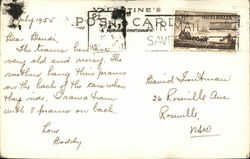 July 1955
VALENTINE'S
POST CARD
AUSTRALIA
Dear Davide,
The trams here are
very old and noisy. The
mothers hang their prams
on the back of the cars when
they ride. I saw a tram
with 8 prams on back.
Love
Daddy
David Troutman
26 Roseville Ave
Roseville
NSW